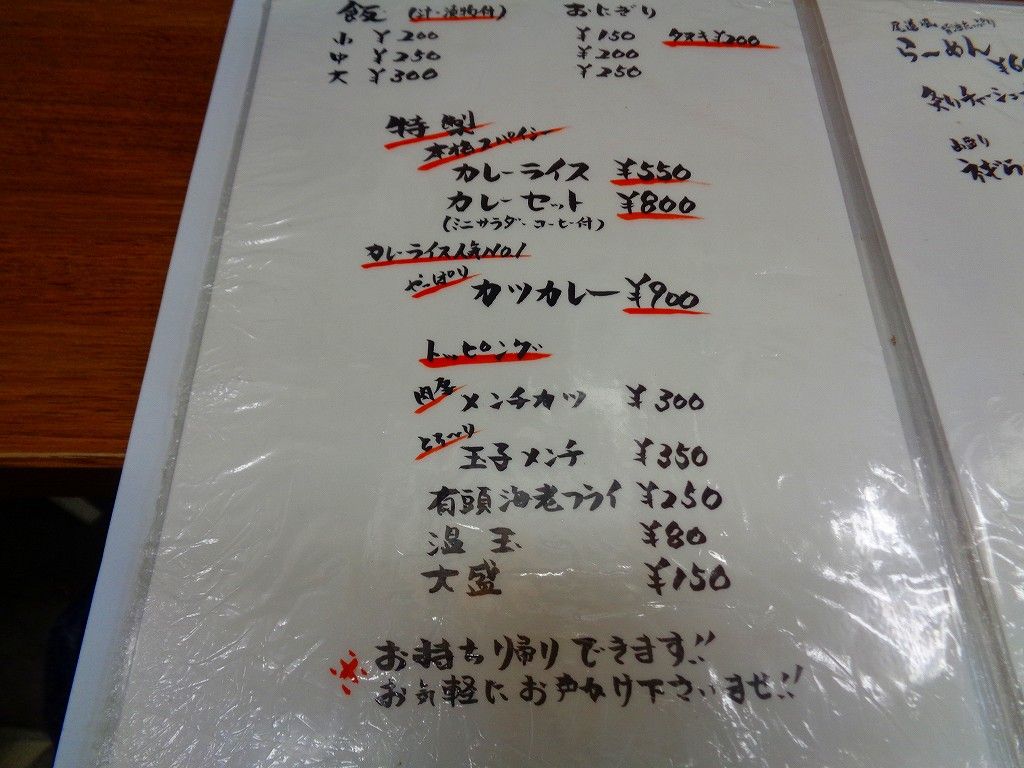 飯 (汁・漬物付)
小 ¥200
中 ¥250
大 ¥300
おにぎり
¥150 タヌキ¥200
¥200
¥250
特製
本格スパイシー
カレーライス ¥550
カレーセット ¥800
(ミニサラダ・コーヒー付)
カレーライス人気NO1
やっぱり カツカレー ¥900
トッピング
肉厚 メンチカツ ¥300
とろ〜り 玉子メンチ ¥350
有頭海老フライ ¥250
温玉 ¥80
大盛 ¥150
※お持ち帰りできます!!
お気軽にお声かけ下さいませ!!
らーめん
炙りチャーシュー